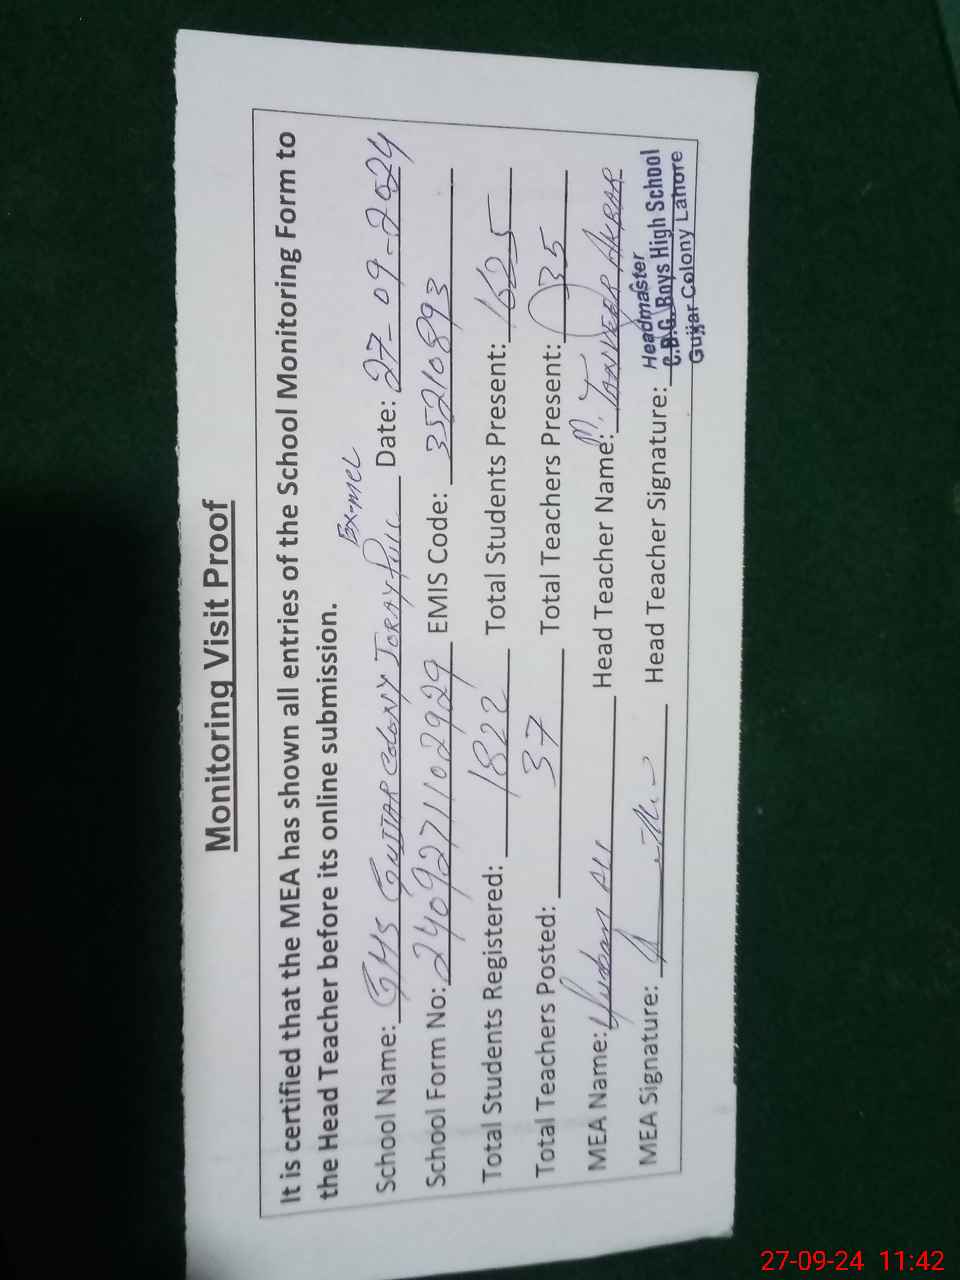 Monitoring Visit Proof
It is certified that the MEA has shown all entries of the School Monitoring Form to
the Head Teacher before its online submission.
Ex-MCL
School Name: GHS GUJJAR COLONY JORAY PULL Date: 27-09-2024
School Form No: 2409271102929 EMIS Code: 35210893
Total Students Registered: 1822 Total Students Present: 1625
Total Teachers Posted: 37 Total Teachers Present: 35
MEA Name: Ali Head Teacher Name: M. TANVEER AKBAR
MEA Signature: Head Teacher Signature:
Headmaster
C.D.G. Boys High School
Gujjar Colony Lahore
27-09-24 11:42